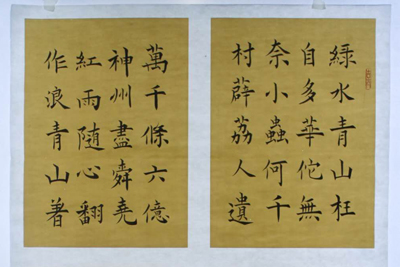 綠水青山枉
自多華佗無
奈小蟲何千
村薜荔人遺
萬千條六億
神州盡舜堯
紅雨随心翻
作浪青山着